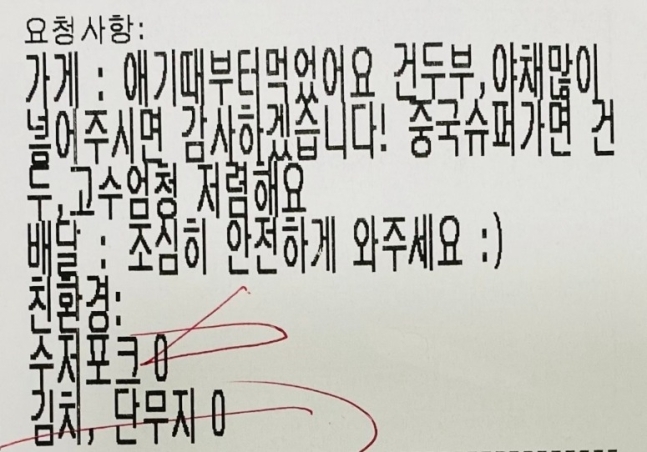 요청사항:
가게 : 애기때부터먹었어요 건두부,야채많이
넣어주시면 감사하겠습니다! 중국슈퍼가면 건
두,고수엄청 저렴해요
배달 : 조심히 안전하게 와주세요 :)
친환경:
수저포크 0
김치, 단무지 0